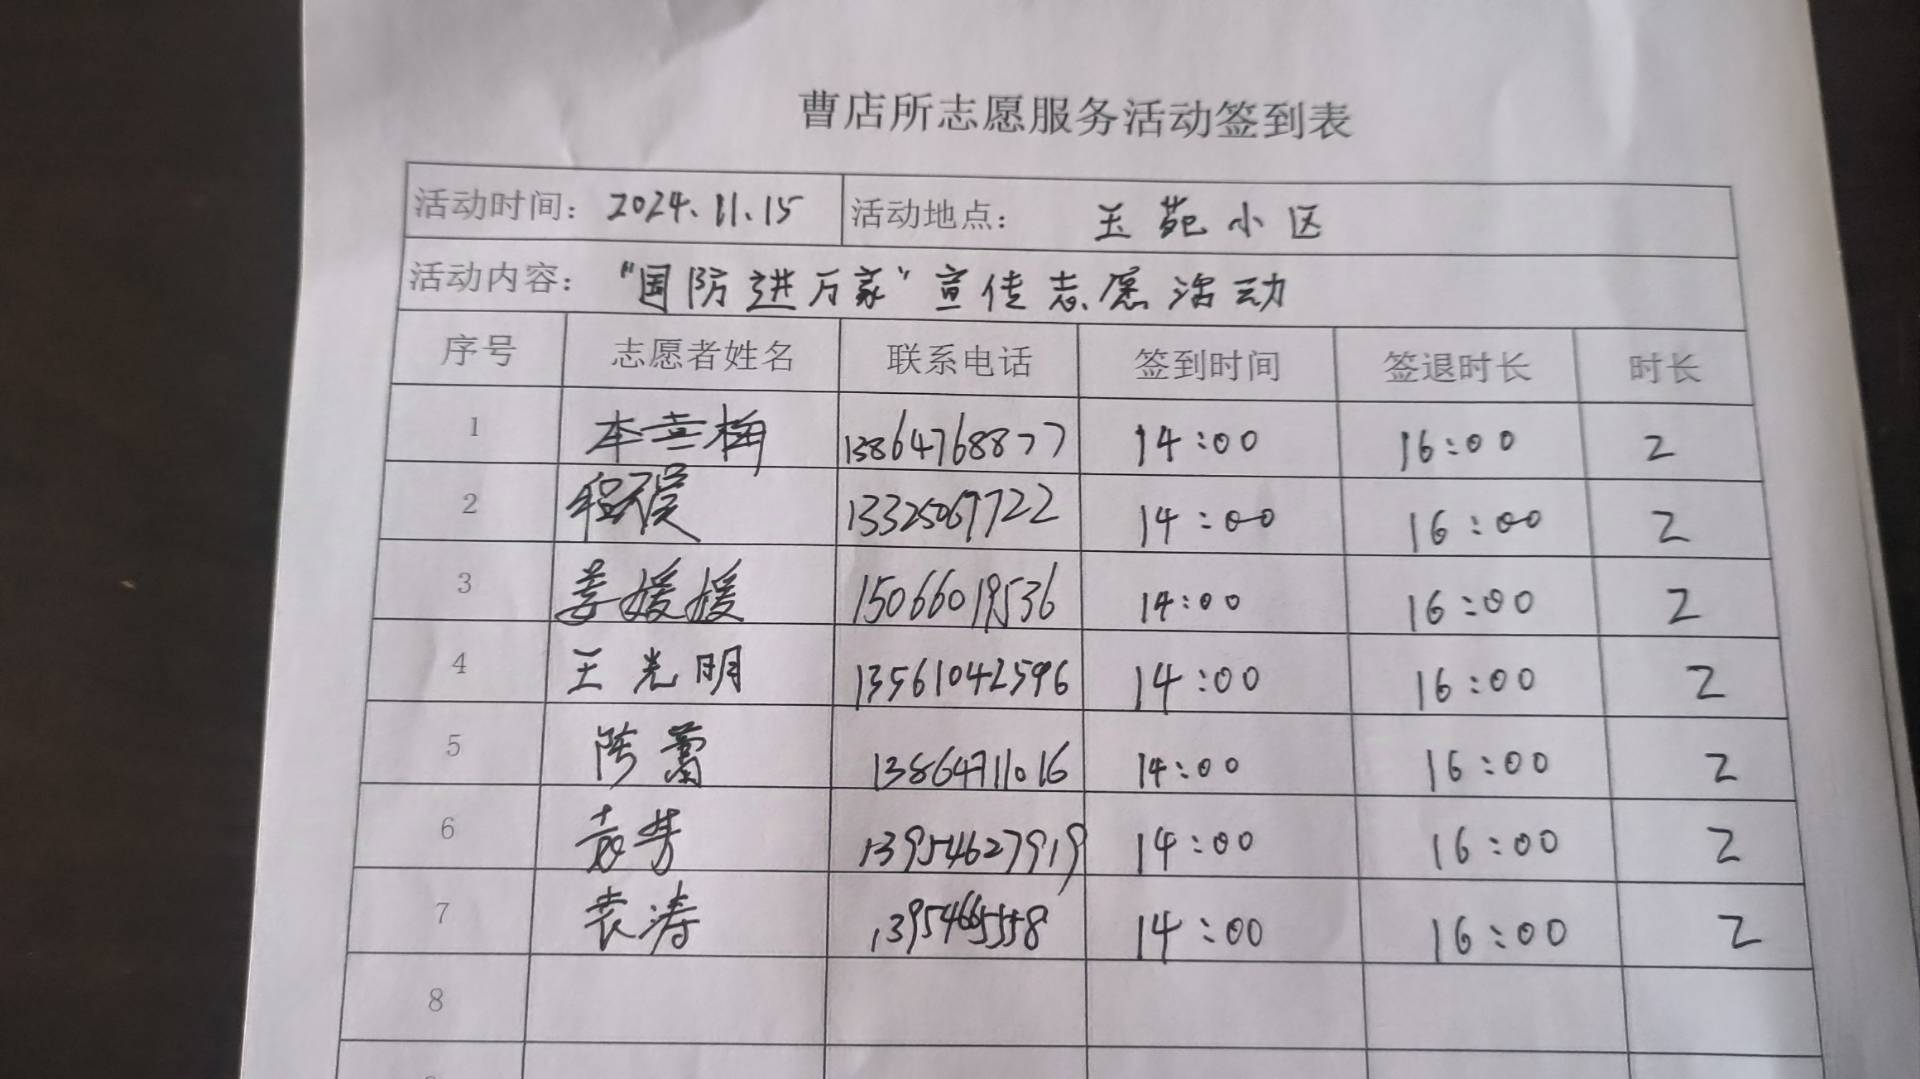 曹店所志愿服务活动签到表
活动时间：2024.11.15 活动地点：玉苑小区
活动内容："国防进万家"宣传志愿活动
序号 志愿者姓名 联系电话 签到时间 签退时长 时长
1 13864768877 14:00 16:00 2
2 13325067722 14:00 16:00 2
3 姜媛媛 15066019536 14:00 16:00 2
4 王光明 13561042596 14:00 16:00 2
5 陈蕾 13864711016 14:00 16:00 2
6 袁芳 13954627919 14:00 16:00 2
7 袁涛 14:00 16:00 2
8